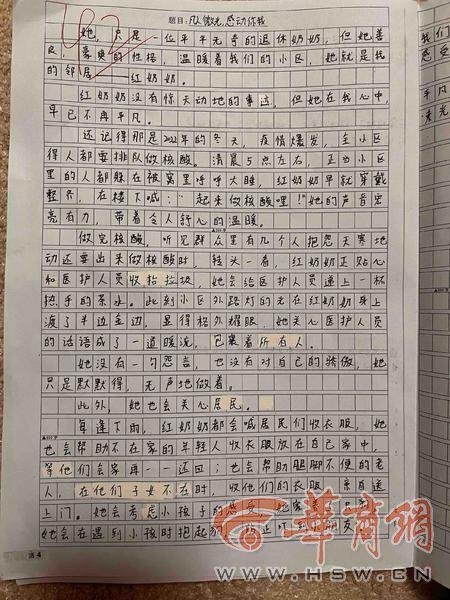 题目：凡人微光,感动你我
42
她,只是一位平平无奇的退休奶奶,但她善
良、豪爽的性格,温暖着我们的小区,她就是我
的邻居——红奶奶。
红奶奶没有惊天动地的事迹,但她在我心中,
早已不再平凡。
还记得那是2022年的冬天,疫情爆发,全小区
得人都要排队做核酸。清晨5点左右,正当小区
里的人都躲在被窝里呼呼大睡,红奶奶早就穿戴
整齐,在楼下喊:“起来做核酸哩!”她的声音宏
亮有力,带着令人舒心的温暖。
做完核酸,听见群众里有几个人抱怨天寒地
动还要出来做核酸时,转头一看,红奶奶正贴心
和医护人员收拾垃圾,她会给医护人员递上一杯
热乎的茶水。此刻小区外路灯的光在红奶奶身上
渡了半边金边,显得格外耀眼,她关心医护人员
的话语成了一道暖流,包裹着所有人。
她没有一句怨言,也没有对自己的骄傲,她
只是默默得,无声地做着。
此外,她也会关心居民。
每逢下雨,红奶奶都会喊居民们收衣服,她
也会帮助不在家的年轻人收衣服放在自己家中,
等他们会家再一一还回;也会帮助腿脚不便的老
人,在他们子女不在时,收他们的衣服,亲自送
上门。她会考虑小孩子的感受,她家
她会在遇到小孩时抱起
我们
感受
平凡
凑光
第4
华商网
WWW.HSW.CN